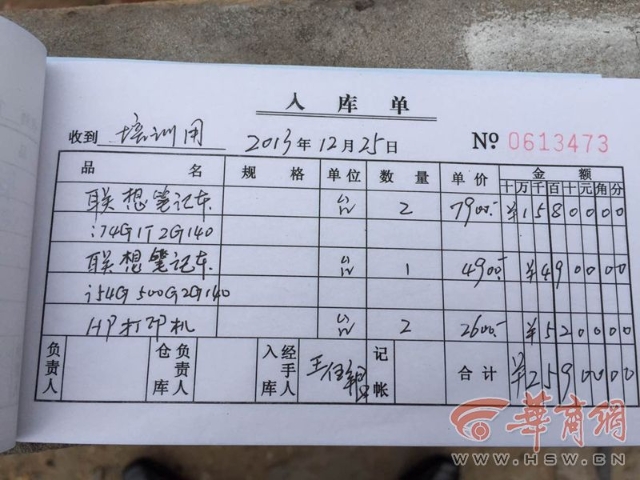 入库单
收到 培训用 2013年12月25日 № 0613473
品名 规格 单位 数量 单价 金额
十万千百十元角分
联想笔记本 台 2 7900.- ¥15800000
i74G1T2G140
联想笔记本 台 1 4900.- ¥490000
i54G500G2G140
HP打印机 台 2 2600.- ¥520000
负责人 仓库负责人 入库经手人 记帐 合计 ¥2590000
華商網
WWW.HSW.CN